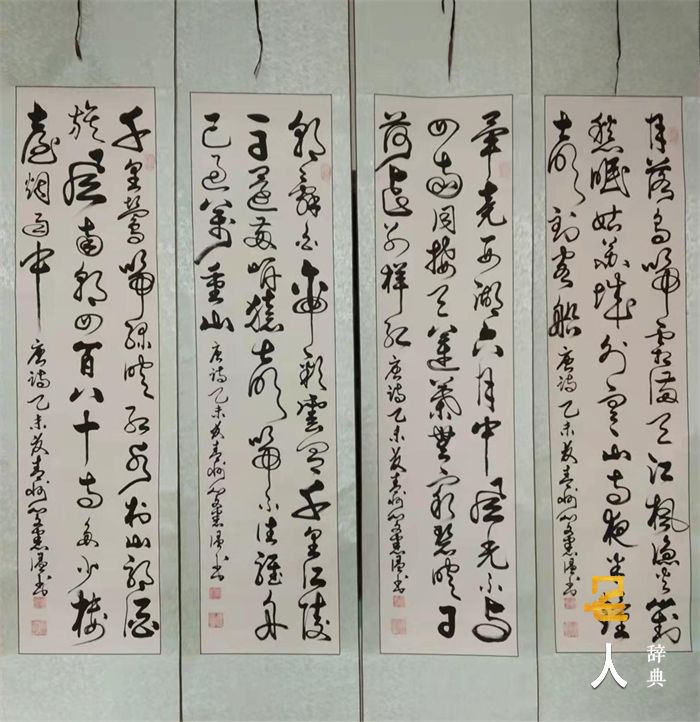 月落烏啼霜满天江枫渔火對
愁眠姑苏城外寒山寺夜半鐘
声到客船 唐诗 乙未夏青州 书
畢竟西湖六月中风光不与
四时同接天莲葉無穷碧映日
荷花别样红 唐诗 乙未夏青州 书
朝辞白帝彩雲间千里江陵
一日還两岸猿声啼不住轻舟
已过萬重山 唐诗 乙未夏青州 书
千里鶯啼绿映红水村山郭酒
旗风南朝四百八十寺多少楼
臺烟雨中 唐诗 乙未夏青州 书
名人辞典